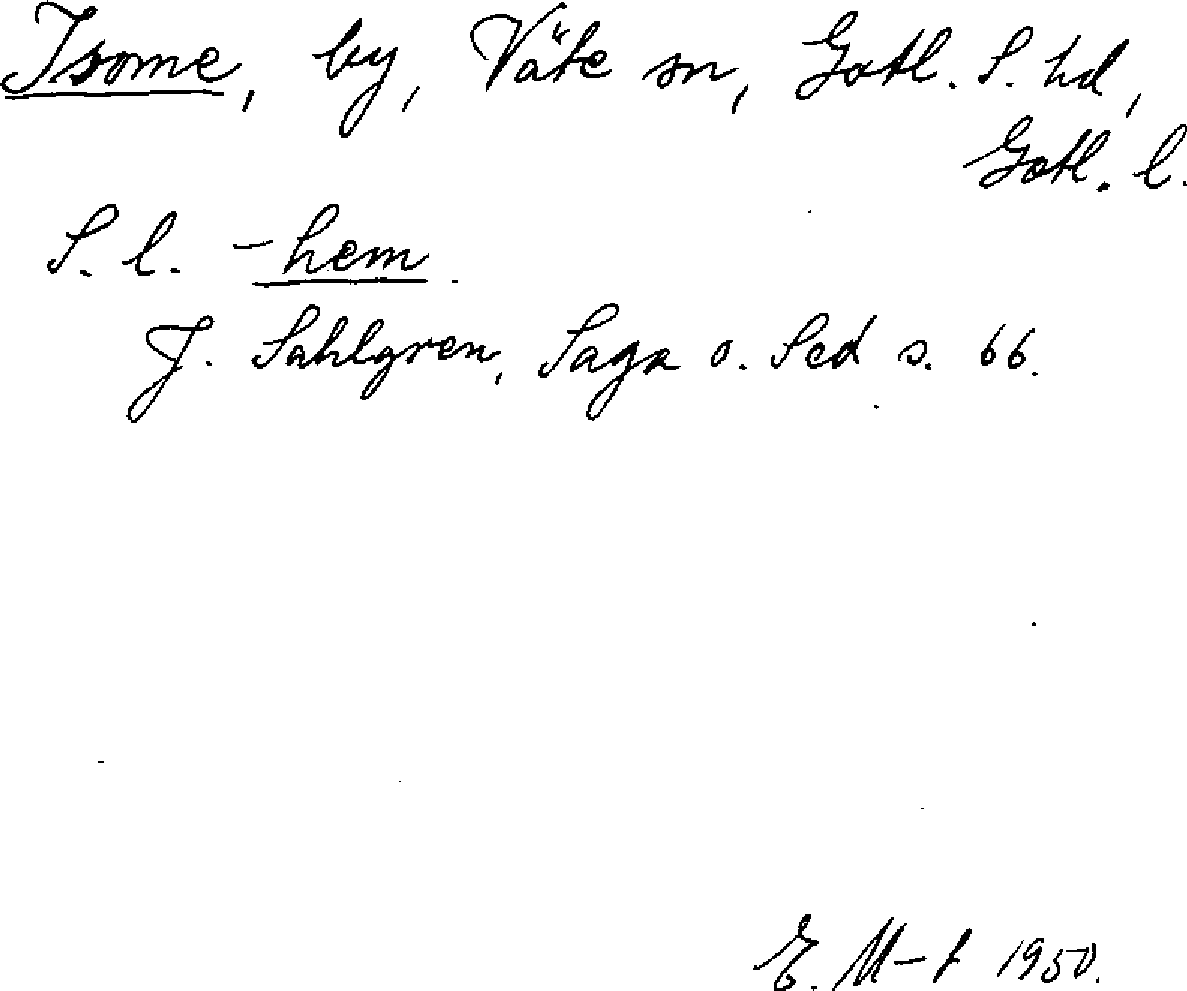 Isome, by, Väte sn, Gotl. S. hd,
Gotl. l.
S. l. -hem.
J. Sahlgren, Saga o. Sed s. 66.
E. M-t 1950.